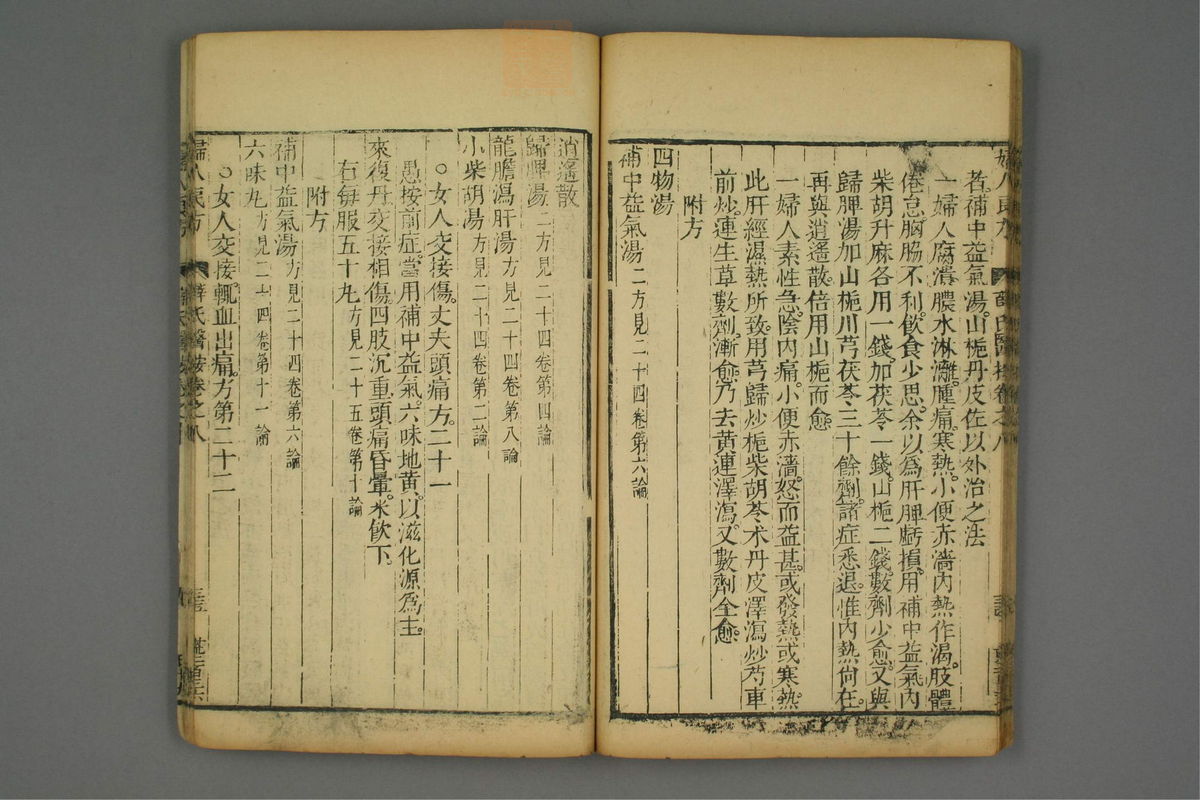 者補中益氣湯山梔丹皮佐以外治之法
一婦人腐潰膿水淋漓腫痛寒熱小便赤濇內熱作渴肢體
倦怠胸脇不利飲食少思余以爲肝脾虧損用補中益氣內
柴胡升麻各用一錢加茯苓一錢山梔二錢數劑少愈又與
歸脾湯加山梔川芎茯苓三十餘劑諸症悉退惟內熱尙在
再與逍遙散倍用山梔而愈
一婦人素性急陰內痛小便赤濇怒而益甚或發熱或寒熱
此肝經濕熱所致用芎歸炒梔柴胡苓朮丹皮澤瀉炒芍車
前炒連生草數劑漸愈乃去黃連澤瀉又數劑全愈
附方
四物湯
補中益氣湯二方見二十四卷第六論
逍遙散
歸脾湯二方見二十四卷第四論
龍膽瀉肝湯方見二十四卷第八論
小柴胡湯方見二十四卷第二論
○女人交接傷丈夫頭痛方二十一
愚按前症當用補中益氣六味地黃以滋化源爲主
來復丹交接相傷四肢沉重頭痛昏暈米飲下
右每服五十丸方見二十五卷第十論
附方
補中益氣湯方見二十四卷第六論
六味丸方見二十四卷第十一論
○女人交接輒血出痛方第二十二